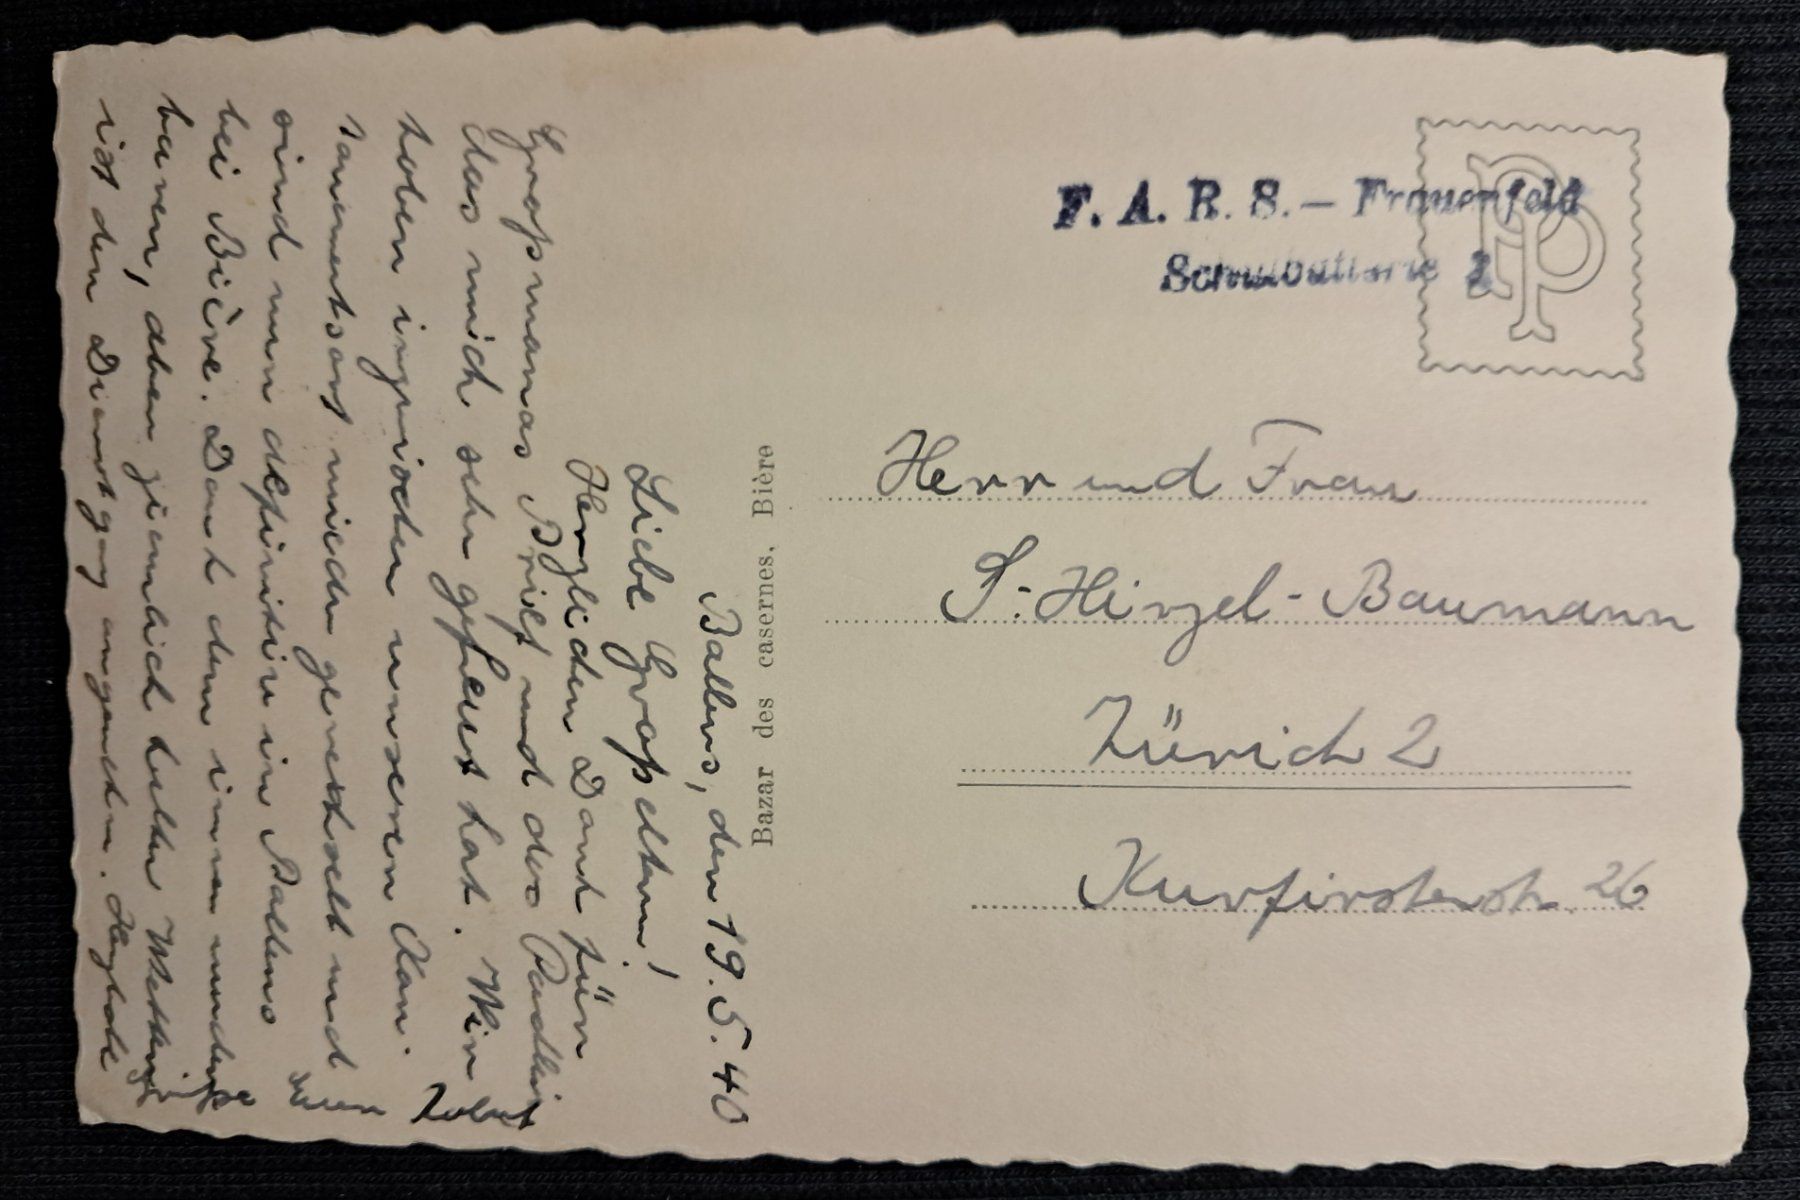 F. A. R. S. — Frauenfeld
Schulbatterie
PP
Herr und Frau
Hirzel-Baumann
Zürich 2
Kurfirstenstr. 26
Bazar des casernes, Bière
Ballens, den 19.5.40
Liebe Großeltern!
Herzlichen Dank für
Großmamas Brief und das
das mich sehr gefreut hat. Wir
haben inzwischen unseren Kan.
tonnementsort wieder gewechselt und
sind nun definitiv in Ballens
bei Bière. Dank dem immer wunder
baren, aber ziemlich kalten Wetter
ist der angenehm. Herzliche
Euer